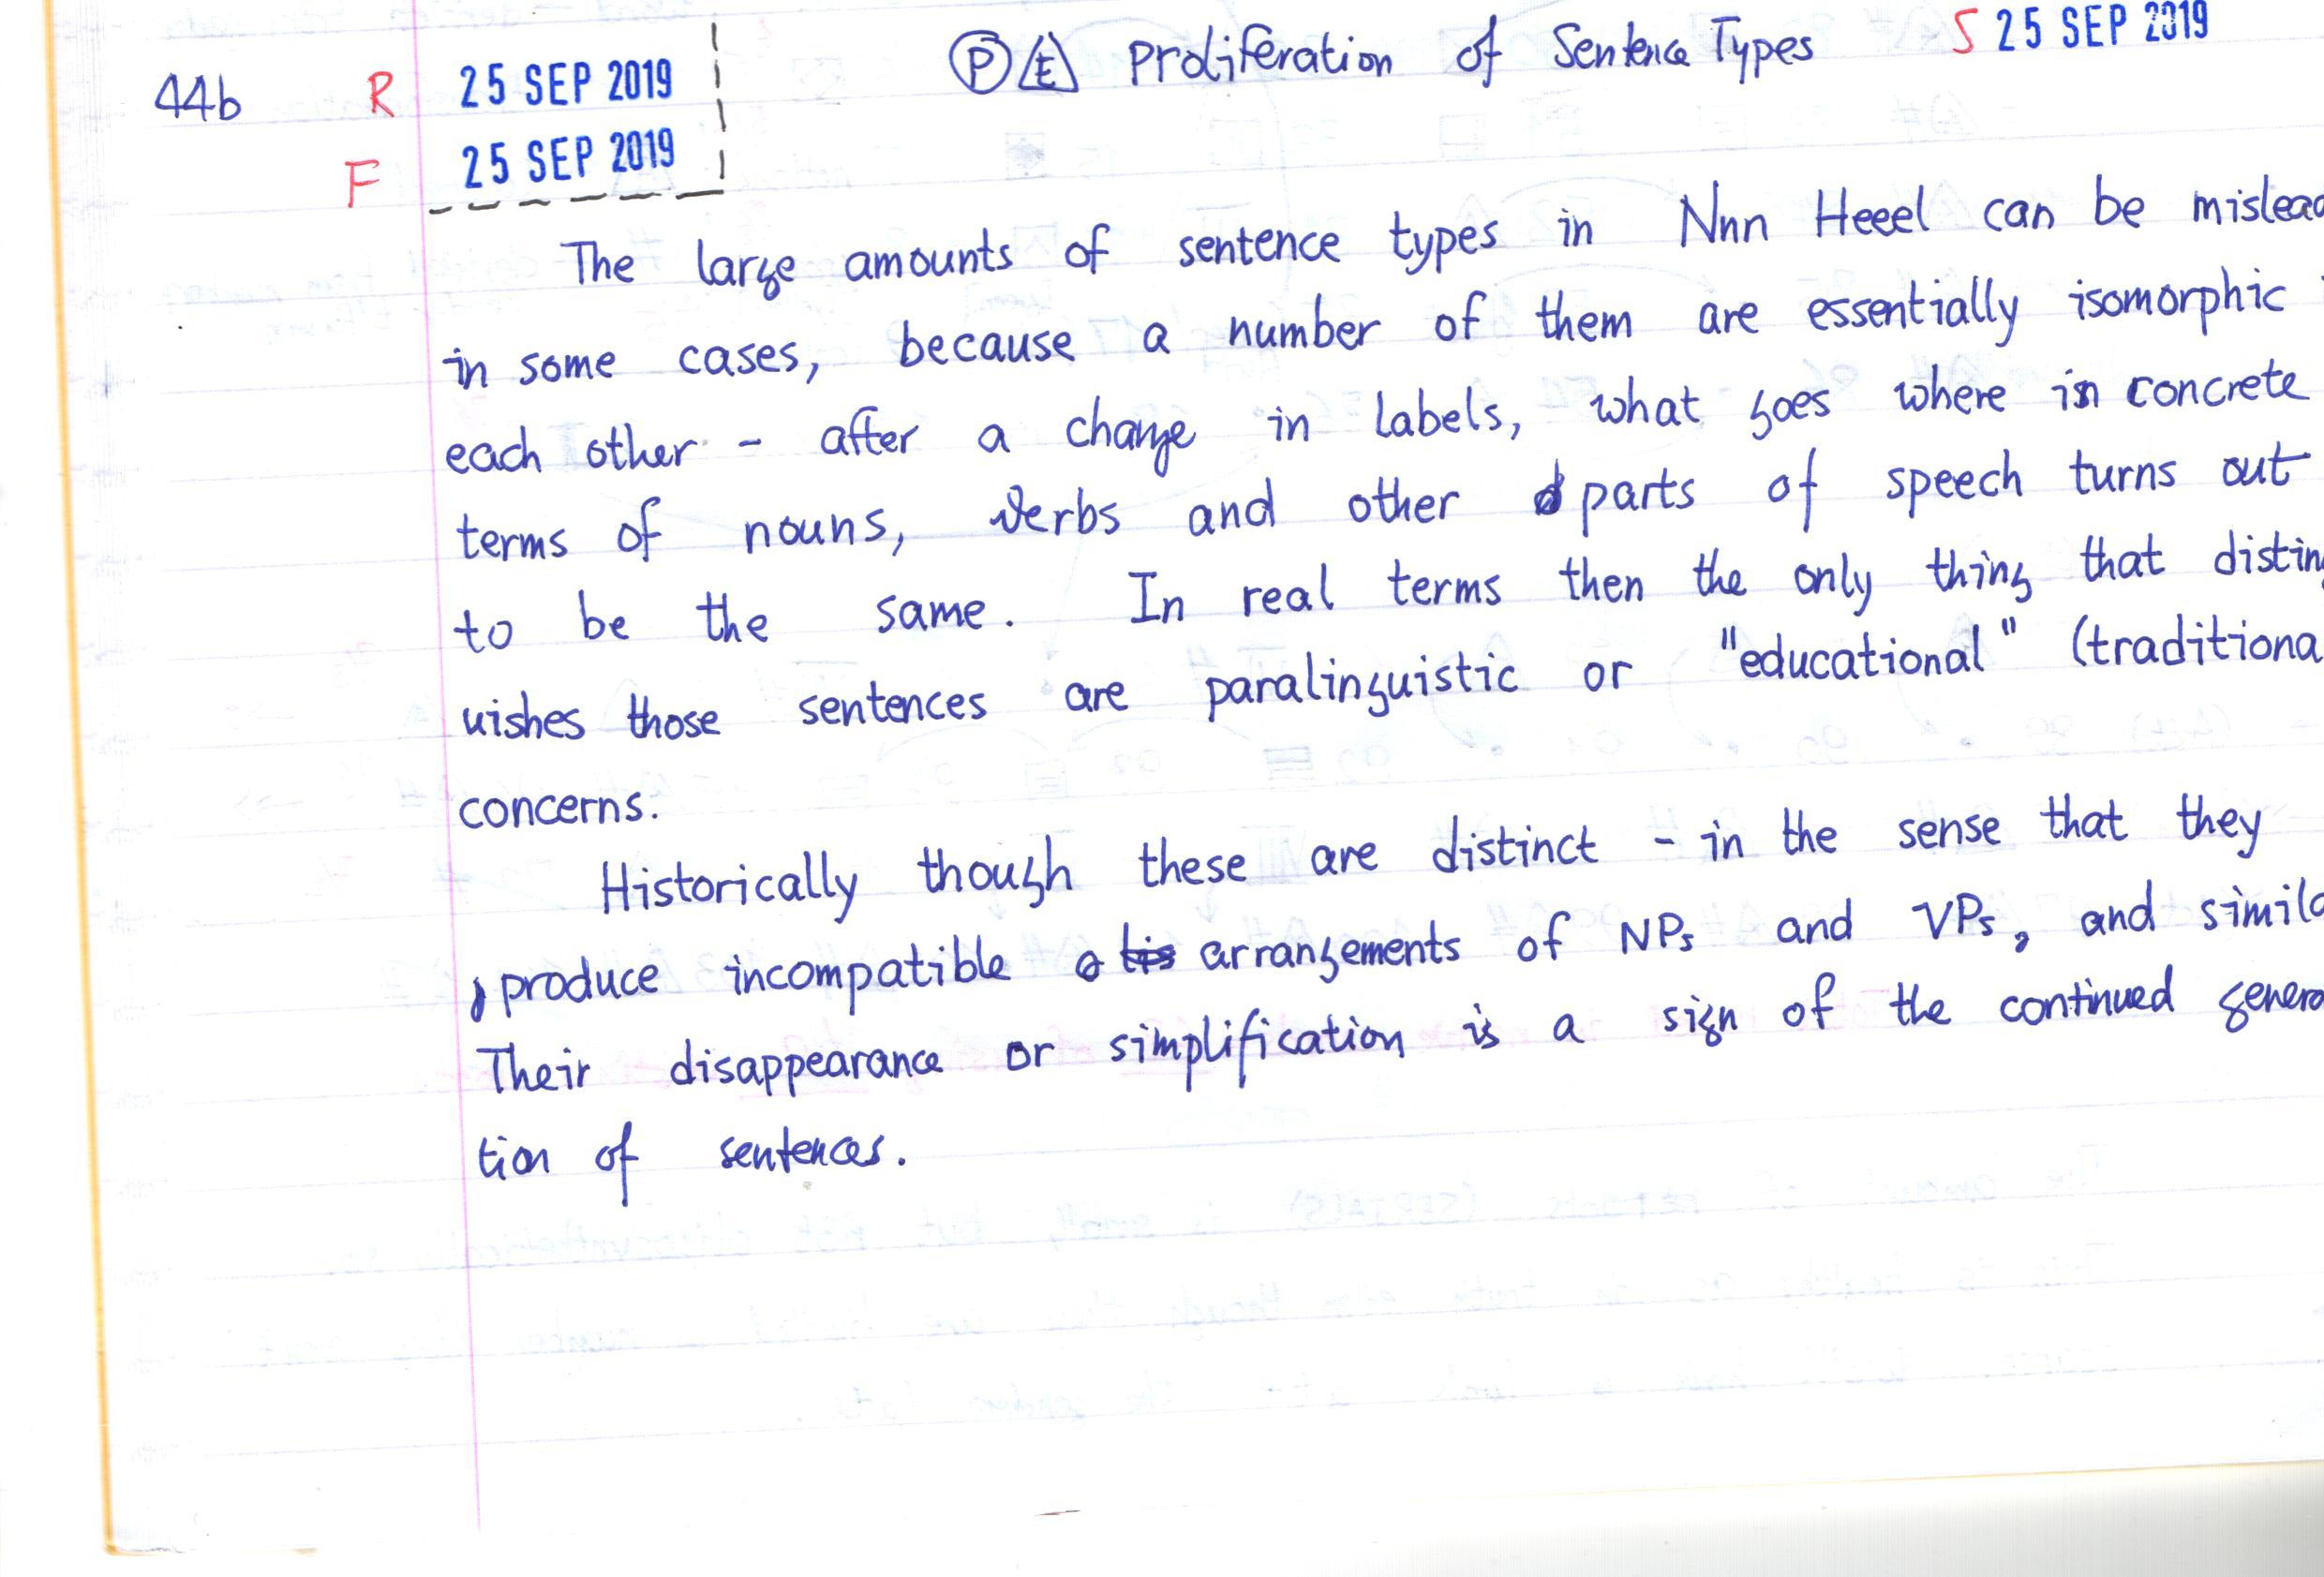 44b R 25 SEP 2019 P E Proliferation of Sentence Types S 25 SEP 2019
F 25 SEP 2019
The large amounts of sentence types in Nnn Heeel can be mislead
in some cases, because a number of them are essentially isomorphic
each other - after a change in labels, what goes where in concrete
terms of nouns, verbs and other parts of speech turns out
to be the same. In real terms then the only thing that disting
uishes those sentences are paralinguistic or "educational" (traditiona
concerns.
Historically though these are distinct - in the sense that they
produce incompatible arrangements of NPs and VPs, and simila
Their disappearance or simplification is a sign of the continued genera
tion of sentences.